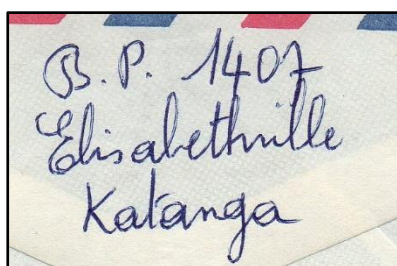 B.P. 1407
Elisabethville
Katanga